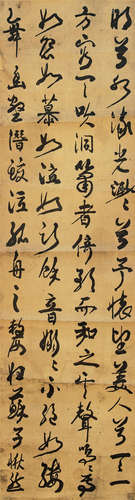 明兮泝流光渺渺兮予懷望美人兮天一
方客有吹洞簫者倚歌而和之其聲嗚嗚然
如怨如慕如泣如訴餘音嫋嫋不絕如縷
舞幽壑潛蛟泣孤舟之嫠婦蘇子愀然